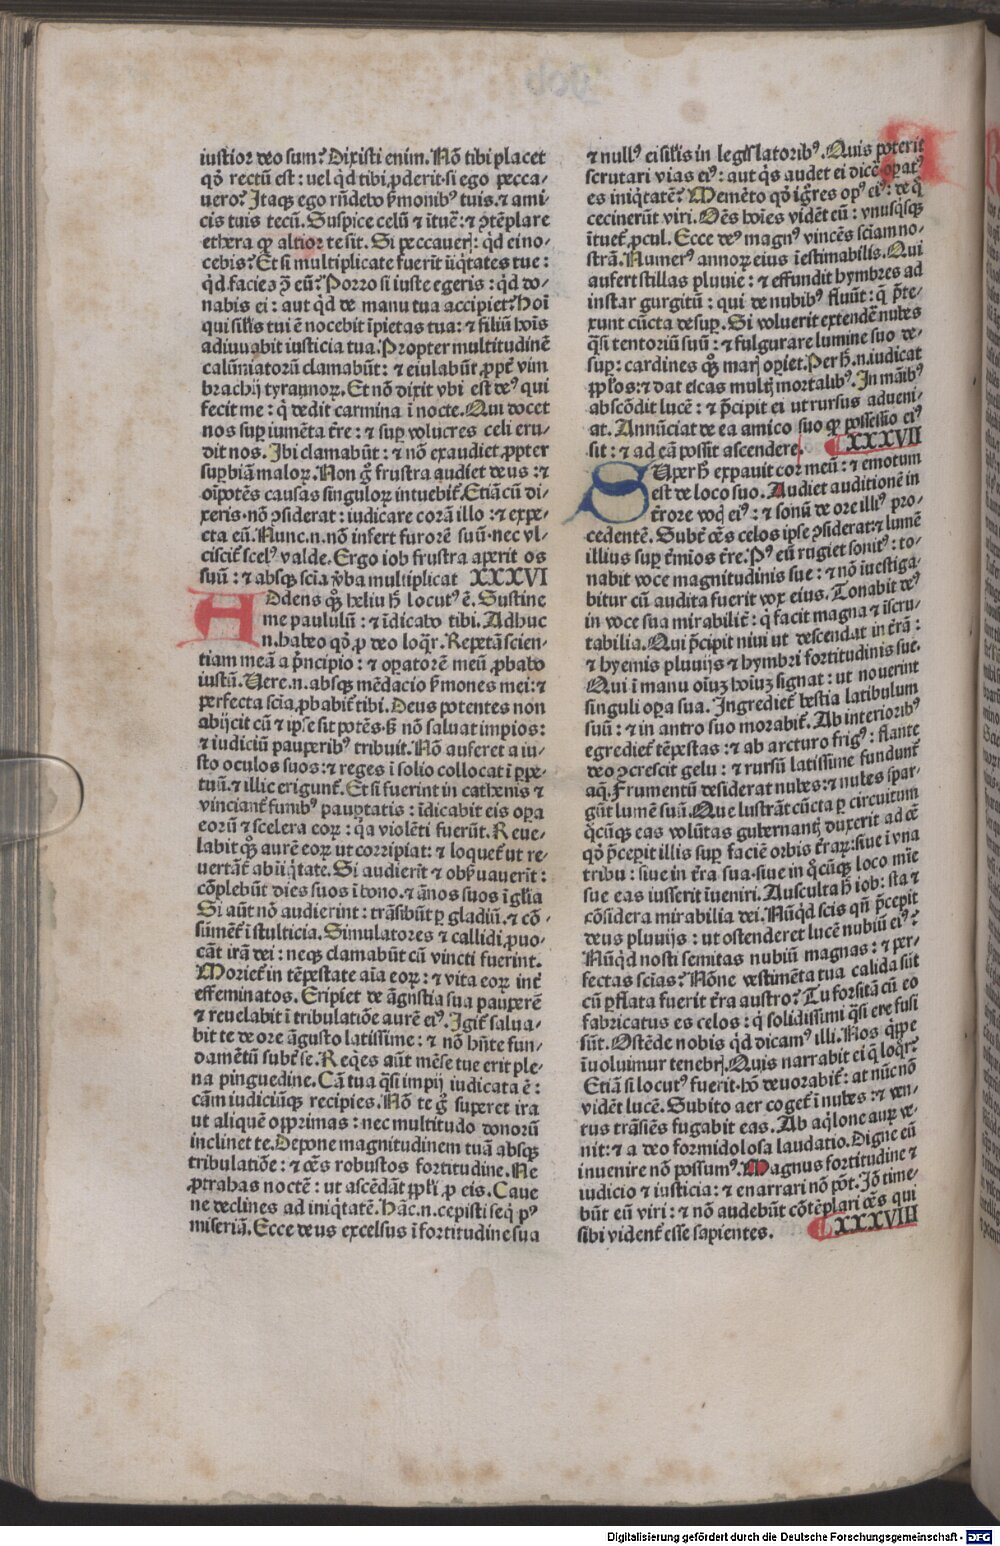 iustior deo sum? Dixisti enim. Nō tibi placet
qđ rectū est: uel qd tibi ꝓderit si ego pecca/
uero? Itaqꝫ ego rñdebo ẜmonibꝰ tuis. ⁊ ami/
cis tuis tecū. Suspice celū ⁊ ītuē: ⁊ ꝯtēplare
ethera ꝙ altior te sit. Si peccaueꝭ: qd ei no/
cebis? Et si multiplicate fuerīt iīqtates tue:
qd facies ꝯ̄ eū? Porro si iuste egeris: qd do/
nabis ei: aut qd de manu tua accipiet? Hoī
qui silis tui ē nocebit īpietas tua: ⁊ filiū hoīs
adiuuabit iusticia tua. Propter multitudinē
calūniatorū clamabūt: ⁊ eiulabūt ꝓpt̄ vim
brachij tyrannoꝝ. Et nō dixit vbi est deꝰ qui
fecit me: q̄ dedit carmina ī nocte. Qui docet
nos suꝑ iumēta t̄re: ⁊ suꝑ volucres celi eru/
dit nos. Ibi clamabūt: ⁊ nō exaudiet ꝓpter
suꝑbiā maloꝝ. Non gͦ frustra audiet deus: ⁊
oīpotēs causas singuloꝝ intuebit̄. Etiā cū di/
xeris. nō ꝯsiderat: iudicare corā illo: ⁊ expe/
cta eū. Nunc.n. nō infert furorē suū. nec vl/
ciscit̄ scelꝰ valde. Ergo iob frustra aperit os
suū: ⁊ absqꝫ scīa v̄ba multiplicat XXXVI
Addens qꝫ heliu h̄ locutꝰ ē. Sustine
me paululū: ⁊ īdicabo tibi. Adhuc
n. habeo qđ ꝓ deo loqr. Repetā scien/
tiam meā a p̄ncipio: ⁊ oꝑatorē meū ꝓbabo
iustū. Vere.n. absqꝫ mēdacio ẜmones mei: ⁊
perfecta scīa ꝓbabit̄ tibi. Deus potentes non
abijcit cū ⁊ ipse sit potēs. ẜ nō saluat impios:
⁊ iudiciū pauperibꝰ tribuit. Nō auferet a iu/
sto oculos suos: ⁊ reges ī solio collocat ī ꝑpe/
tuū. ⁊ illic erigunt̄. Et si fuerint in cathenis ⁊
vinciant̄ funibꝰ pauꝑtatis: īdicabit eis oꝑa
eorū ⁊ scelera eoꝝ: qa violēti fuerūt. Reue/
labit qꝫ aurē eoꝝ ut corripiat: ⁊ loquet̄ ut re/
uertāt̄ ab iīqtate. Si audierīt ⁊ obẜuauerīt:
cōplebūt dies suos ī bono. ⁊ ānos suos ī glīa
Si aūt nō audierint: trāsibūt ꝑ gladiū. ⁊ cō/
sūmēt̄ ī stulticia. Simulatores ⁊ callidi ꝓuo/
cāt irā dei: neqꝫ clamabūt cū vincti fuerint.
Moriet̄ in tēpestate aīa eoꝝ: ⁊ vita eoꝝ int̄
effeminatos. Eripiet de āgustia sua pauperē
⁊ reuelabit ī tribulatiōe aurē eiꝰ. Igit̄ salua/
bit te de ore āgusto latissime: ⁊ nō hn̄te fun/
damētū subt̄ se. Reqes aūt mēse tue erit ple/
na pinguedine. Cā tua q̄si impij iudicata ē:
cām iudiciūqꝫ recipies. Nō te gͦ superet ira
ut aliquē opprimas: nec multitudo donorū
inclinet te. Depone magnitudinem tuā absqꝫ
tribulatiōe: ⁊ oēs robustos fortitudine. Ne
ꝓtrahas noctē: ut ascēdāt ppli ꝓ eis. Caue
ne declines ad iniqtatē. Hāc.n. cepisti seq pꝰ
miseriā. Ecce deus excelsus ī fortitudine sua
⁊ nullꝰ ei silis in legislatoribꝰ. Quis poterit
scrutari vias eiꝰ: aut qs audet ei dicē opatꝰ
es iniqtatē? Memēto qđ igres opꝰ eiꝰ: de q̄
cecinerūt viri. Oēs hoīes vidēt eū: vnusqsqꝫ
ītuet̄ ꝓcul. Ecce deꝰ magnꝰ vincēs sciam no/
strā. Numerꝰ annoꝝ eius iestimabilis. Qui
aufert stillas pluuie: ⁊ effundit hymbres ad
instar gurgitū: qui de nubibꝰ fluūt: q̄ p̄te/
xunt cūcta desuꝑ. Si voluerit extendē nubes
q̄si tentoriū suū: ⁊ fulgurare lumine suo de/
suꝑ: cardines qꝫ marꝭ oꝑiet. Per h̄.n. iudicat
pplos: ⁊ dat escas multꝭ mortalibꝰ. In mābꝰ
abscōdit lucē: ⁊ p̄cipit ei ut rursus adueni/
at. Annūciat de ea amico suo ꝙ possessio eiꝰ
sit: ⁊ ad eā possit ascendere. XXXVII
Super h̄ expauit cor meū: ⁊ emotum
est de loco suo. Audiet auditionē in
t̄rore vocꝭ eiꝰ: ⁊ sonū de ore illiꝰ pro/
cedentē. Subt̄ oēs celos ipse ꝯsiderat: ⁊ lumē
illius suꝑ t̄mīos t̄re. Pꝰ eū rugiet sonitꝰ: to/
nabit voce magnitudinis sue: ⁊ nō iuestiga/
bitur cū audita fuerit vox eius. Tonabit deꝰ
in voce sua mirabilit̄: q̄ facit magna ⁊ iscru/
tabilia. Qui p̄cipit niui ut descendat in t̄rā:
⁊ hyemis pluuijs ⁊ hymbri fortitudinis sue.
Qui ī manu oīuꝫ hoīuꝫ signat: ut nouerint
singuli oꝑa sua. Ingrediet̄ bestia latibulum
suū: ⁊ in antro suo morabit̄. Ab interioribꝰ
egrediet̄ tēpestas: ⁊ ab arcturo frigꝰ: flante
deo ꝯcrescit gelu: ⁊ rursū latissime fundunt̄
aq̄. Frumentū desiderat nubes: ⁊ nubes spar/
gūt lumē suū. Que lustrāt cūcta ꝑ circuitum
q̄cūqꝫ eas volūtas gubernantꝭ duxerit ad oē
qđ p̄ceꝑit illis suꝑ faciē orbis t̄raꝝ: siue ī vna
tribu: siue in t̄ra sua. siue in q̄cūqꝫ loco mīe
sue eas iusserit īueniri. Ausculta h̄ iob: sta ⁊
cōsidera mirabilia dei. Nūqd scis qn̄ p̄cepit
deus pluuijs: ut ostenderet lucē nubiū eiꝰ?
Nūqd nosti semitas nubiū magnas: ⁊ per/
fectas scīas? Nōne vestimēta tua calida sūt
cū ꝑflata fuerit t̄ra austro? Tu forsitā cū eo
fabricatus es celos: q̄ solidissimi q̄si ere fusi
sūt. Ostēde nobis qd dicamꝰ illi. Nos q̄ppe
īuoluimur tenebrꝭ. Quis narrabit ei q̄ loqr?
Etiā si locutꝰ fuerit. hō deuorabit̄: at nūc nō
vidēt lucē. Subito aer coget̄ ī nubes: ⁊ ven/
tus trāsiēs fugabit eas. Ab aqlone auꝝ ve/
nit: ⁊ a deo formidolosa laudatio. Digne eū
inuenire nō possumꝰ. Magnus fortitudine ⁊
iudicio ⁊ iusticia: ⁊ enarrari nō pōt. Iō time/
būt eū viri: ⁊ nō audebūt cōtēplari oēs qui
sibi vident̄ esse sapientes. XXXVIII
Digitalisierung gefördert durch die Deutsche Forschungsgemeinschaft - DFG